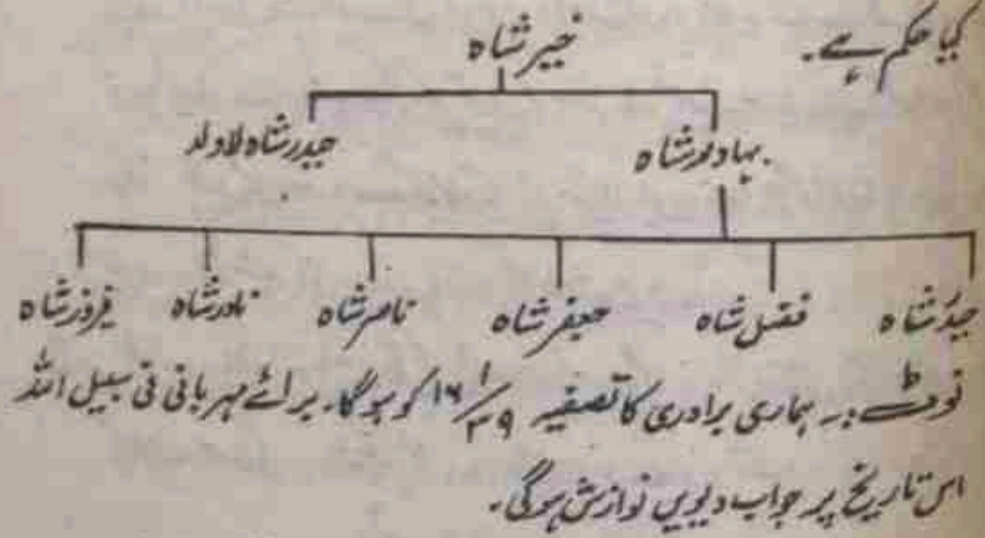 کیا حکم ہے۔
خیر شاہ
بہادر شاہ حیدر شاہ لاولد
حیدر شاہ فضل شاہ جعفر شاہ ناصر شاہ نادر شاہ فیروز شاہ
نوٹ :۔ ہماری برادری کا تصفیہ ۱۶/۱/۳۹ کو ہو گا۔ برائے مہربانی فی سبیل اللہ
اس تاریخ پر جواب دیویں نوازش ہوگی۔